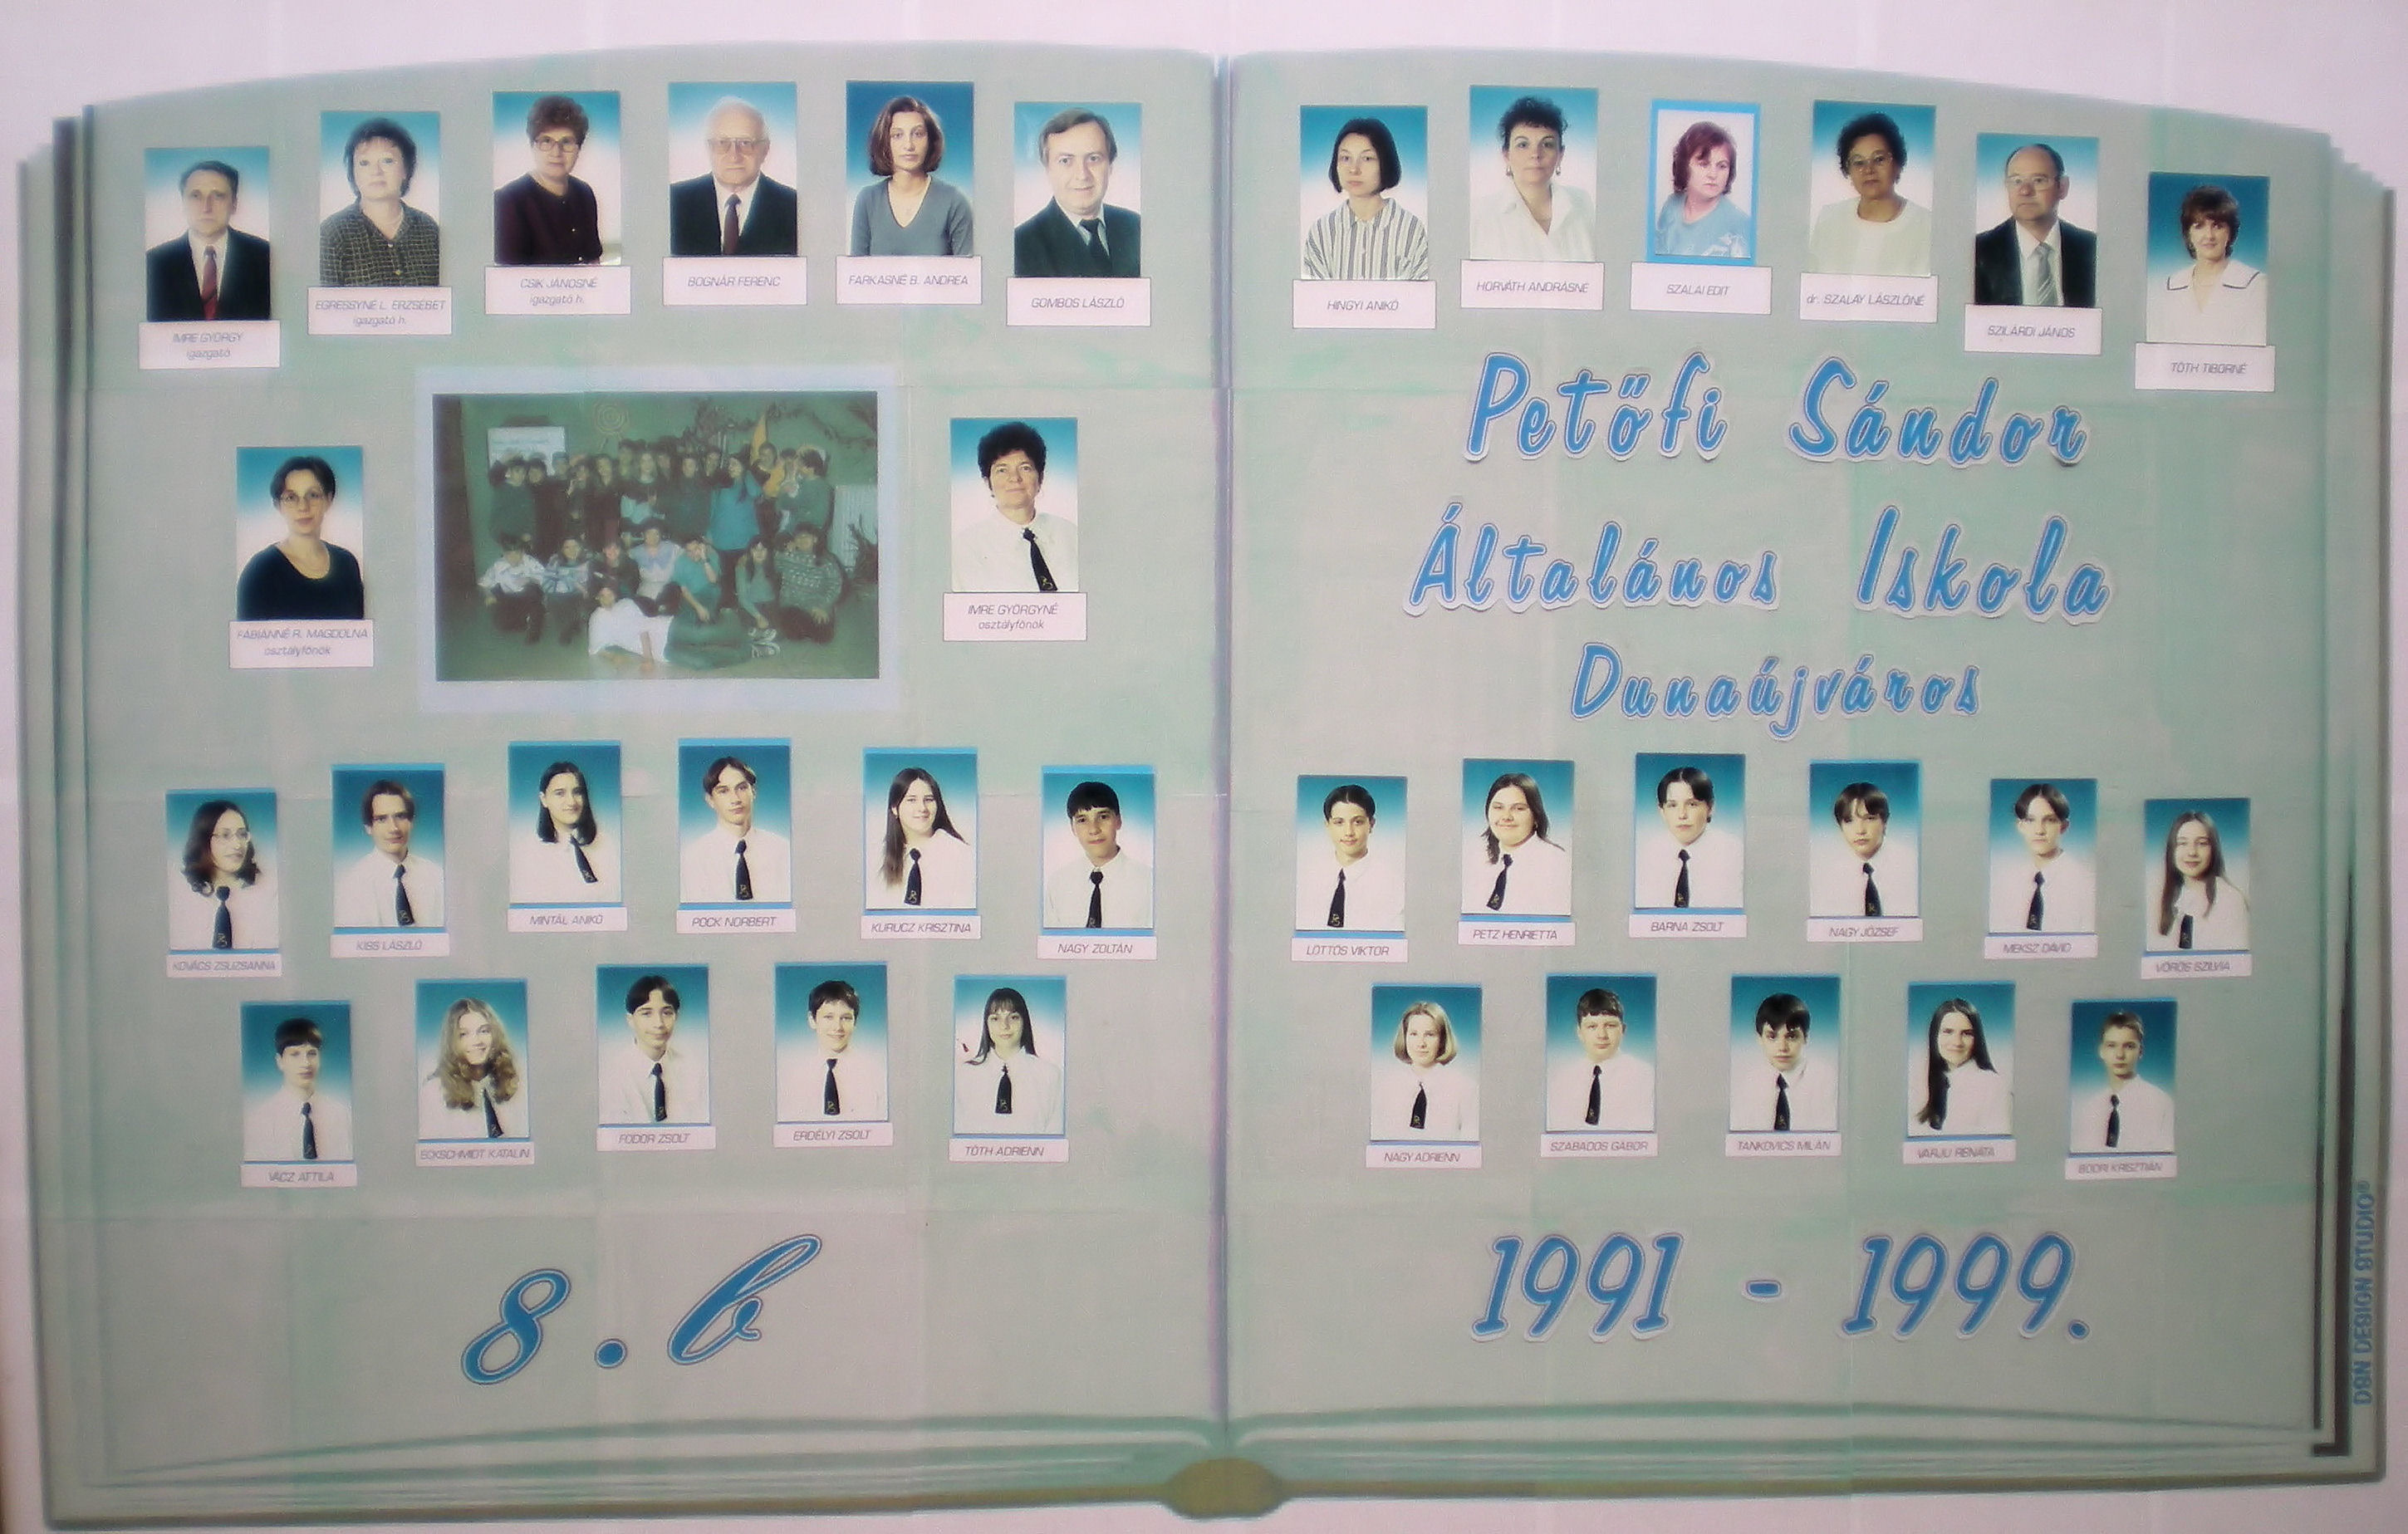 IMRE GYÖRGY
igazgató
EGRESSYNÉ L. ERZSÉBET
igazgató h.
CSIK JÁNOSNÉ
igazgató h.
BOGNÁR FERENC
FARKASNÉ B. ANDREA
GOMBOS LÁSZLÓ
HINGYI ANIKÓ
HORVÁTH ANDRÁSNÉ
SZALAI EDIT
dr. SZALAY LÁSZLÓNÉ
SZILÁRDI JÁNOS
TÓTH TIBORNÉ
FÁBIÁNNÉ R. MAGDOLNA
osztályfőnök
IMRE GYÖRGYNÉ
osztályfőnök
Petőfi Sándor
Általános Iskola
Dunaújváros
KOVÁCS ZSUZSANNA
KISS LÁSZLÓ
MINTÁL ANIKÓ
POCK NORBERT
KURUCZ KRISZTINA
NAGY ZOLTÁN
LÖTTŐS VIKTOR
PETZ HENRIETTA
BARNA ZSOLT
NAGY JÓZSEF
MEKSZ DÁVID
VÖRÖS SZILVIA
VÁCZ ATTILA
ECKSCHMIDT KATALIN
FODOR ZSOLT
ERDÉLYI ZSOLT
TÓTH ADRIENN
NAGY ADRIENN
SZABADOS GÁBOR
TANKOVICS MILÁN
VARJU RENÁTA
BODRI KRISZTIÁN
8. b
1991 - 1999.
DGN DESIGN STUDIO®